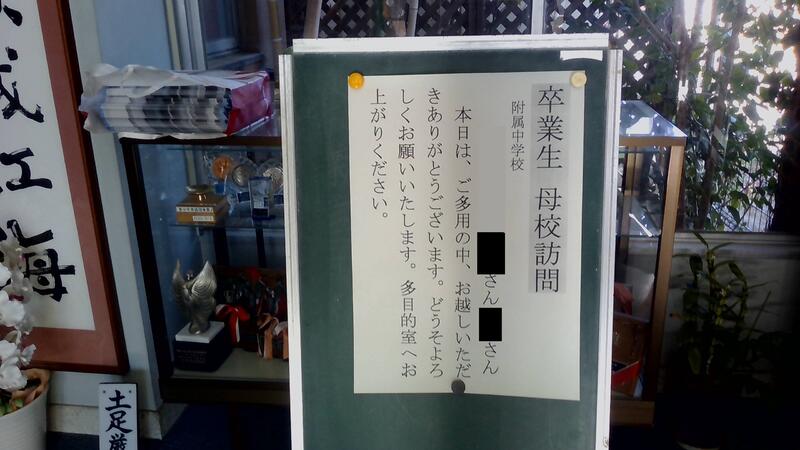 卒業生 母校訪問
附属中学校
さん さん
本日は、ご多用の中、お越しいただ
きありがとうございます。どうぞよろ
しくお願いいたします。多目的室へお
上がりください。
土足厳